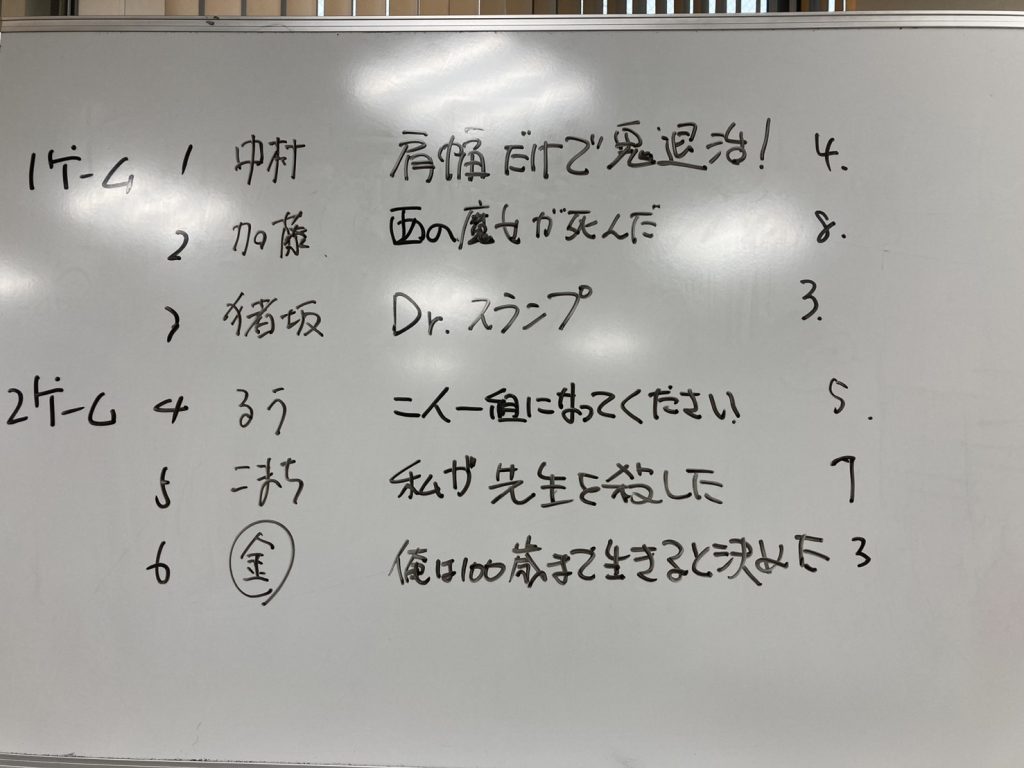 1ゲーム 1 中村 肩痛だけで鬼退治! 4.
2 加藤 西の魔女が死んだ 8.
3 猪坂 Dr.スランプ 3.
2ゲーム 4 るう 二人一組になってください 5.
5 こまち 私が先生を殺した 7
6 金 俺は100歳まで生きると決めた 3